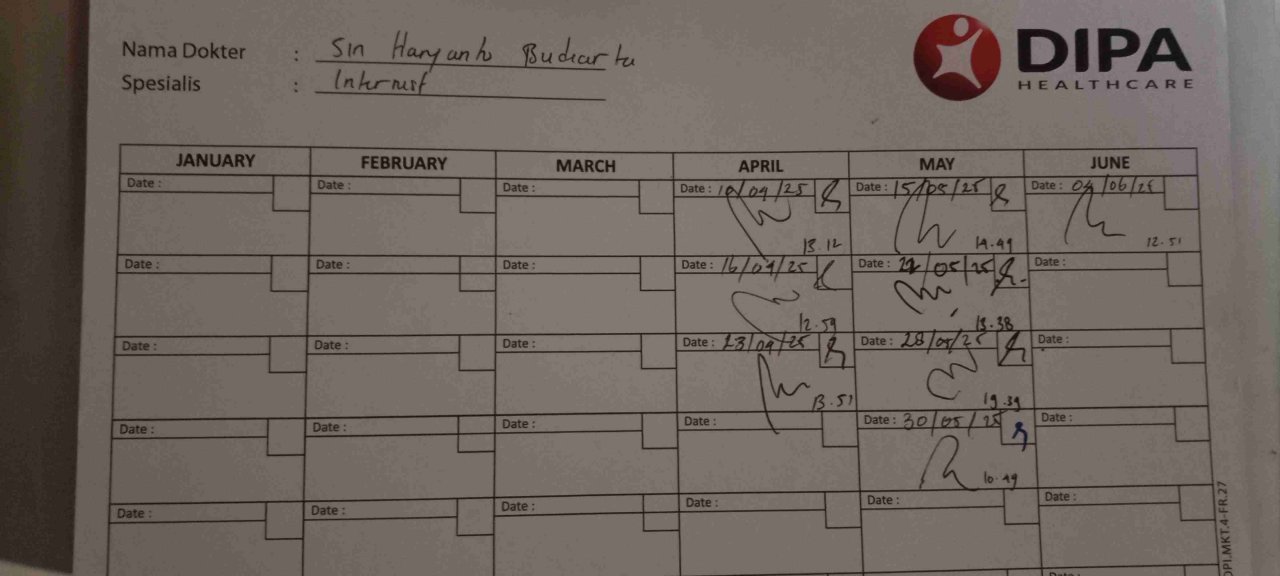 Nama Dokter : Sin Haryanto Budiarta
Spesialis : Internist
DIPA
HEALTHCARE
JANUARY FEBRUARY MARCH APRIL MAY JUNE
Date : Date : Date : Date : 10/04/25 Date : 15/05/25 Date : 04/06/25
13.12 14.49 12.51
Date : Date : Date : Date : 16/04/25 Date : 22/05/25 Date :
12.59 13.38
Date : Date : Date : Date : 23/04/25 Date : 28/05/25 Date :
13.51 19.39
Date : Date : Date : Date : Date : 30/05/25 Date :
10.49
Date : Date : Date : Date : Date : Date :
Date :
DPI.MKT.4-FR.27